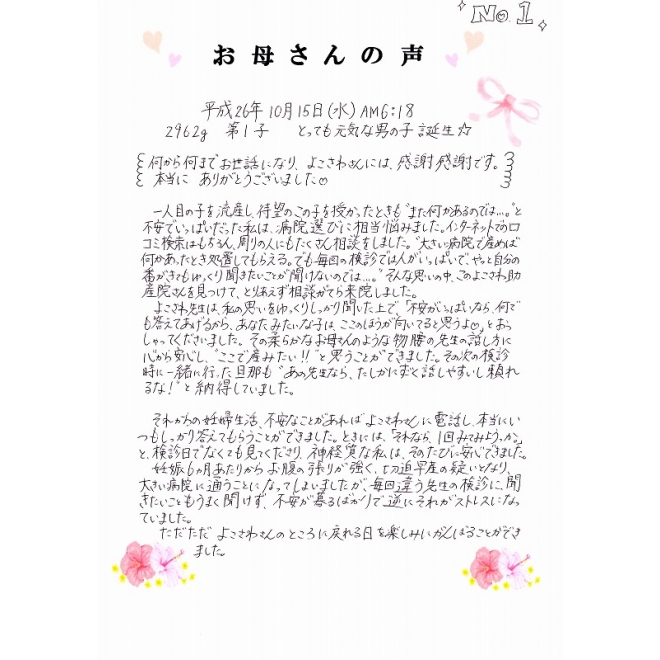 No.1
お母さんの声
平成26年10月15日(水)AM6:18
2962g 第1子 とっても元気な男の子誕生☆
何から何までお世話になり、よこさわさんには、感謝感謝です。
本当に ありがとうございました♡
一人目の子を流産し、待望のこの子を授かったときも"また何かあるのでは…。"と
不安でいっぱいだった私は、病院選びに相当悩みました。インターネットでの口
コミ検索はもちろん、周りの人にもたくさん相談をしました。"大きい病院で産めば
何かあったとき処置してもらえる。でも毎回の検診では人がいっぱいで、やっと自分の
番がきてもゆっくり聞きたいことが聞けないのでは…。"そんな思いの中、このよこさわ助
産院さんを見つけて、とりあえず相談がてら来院しました。
よこさわ先生は、私の思いをゆっくりしっかり聞いた上で「不安がいっぱいなら、何で
も答えてあげるから、あなたみたいな子は、ここのほうが向いてると思うよ♡」とおっ
しゃってくださいました。その柔らかなお母さんのような物腰の先生の話し方に
心から安心し、"ここで産みたい!!"と思うことができました。その次の検診
時に一緒に行った旦那も"あの先生なら、たしかにすごく話しやすいし頼れ
るな!"と納得していました。
それからの妊婦生活、不安なことがあればよこさわさんに電話し、本当にい
つもしっかり答えてもらうことができました。ときには、「それなら、1回みてみようか。」
と、検診日でなくても見てくださり、神経質な私は、そのたびに安心できました。
妊娠6ヵ月あたりからお腹の張りが強く、切迫早産の疑いとなり、
大きい病院に通うことになってしまいましたが、毎回違う先生の検診に、聞
きたいこともうまく聞けず、不安が募るばかりで逆にそれがストレスになっ
ていました。
ただただ よこさわさんのところに戻れる日を楽しみにがんばることができ
ました。